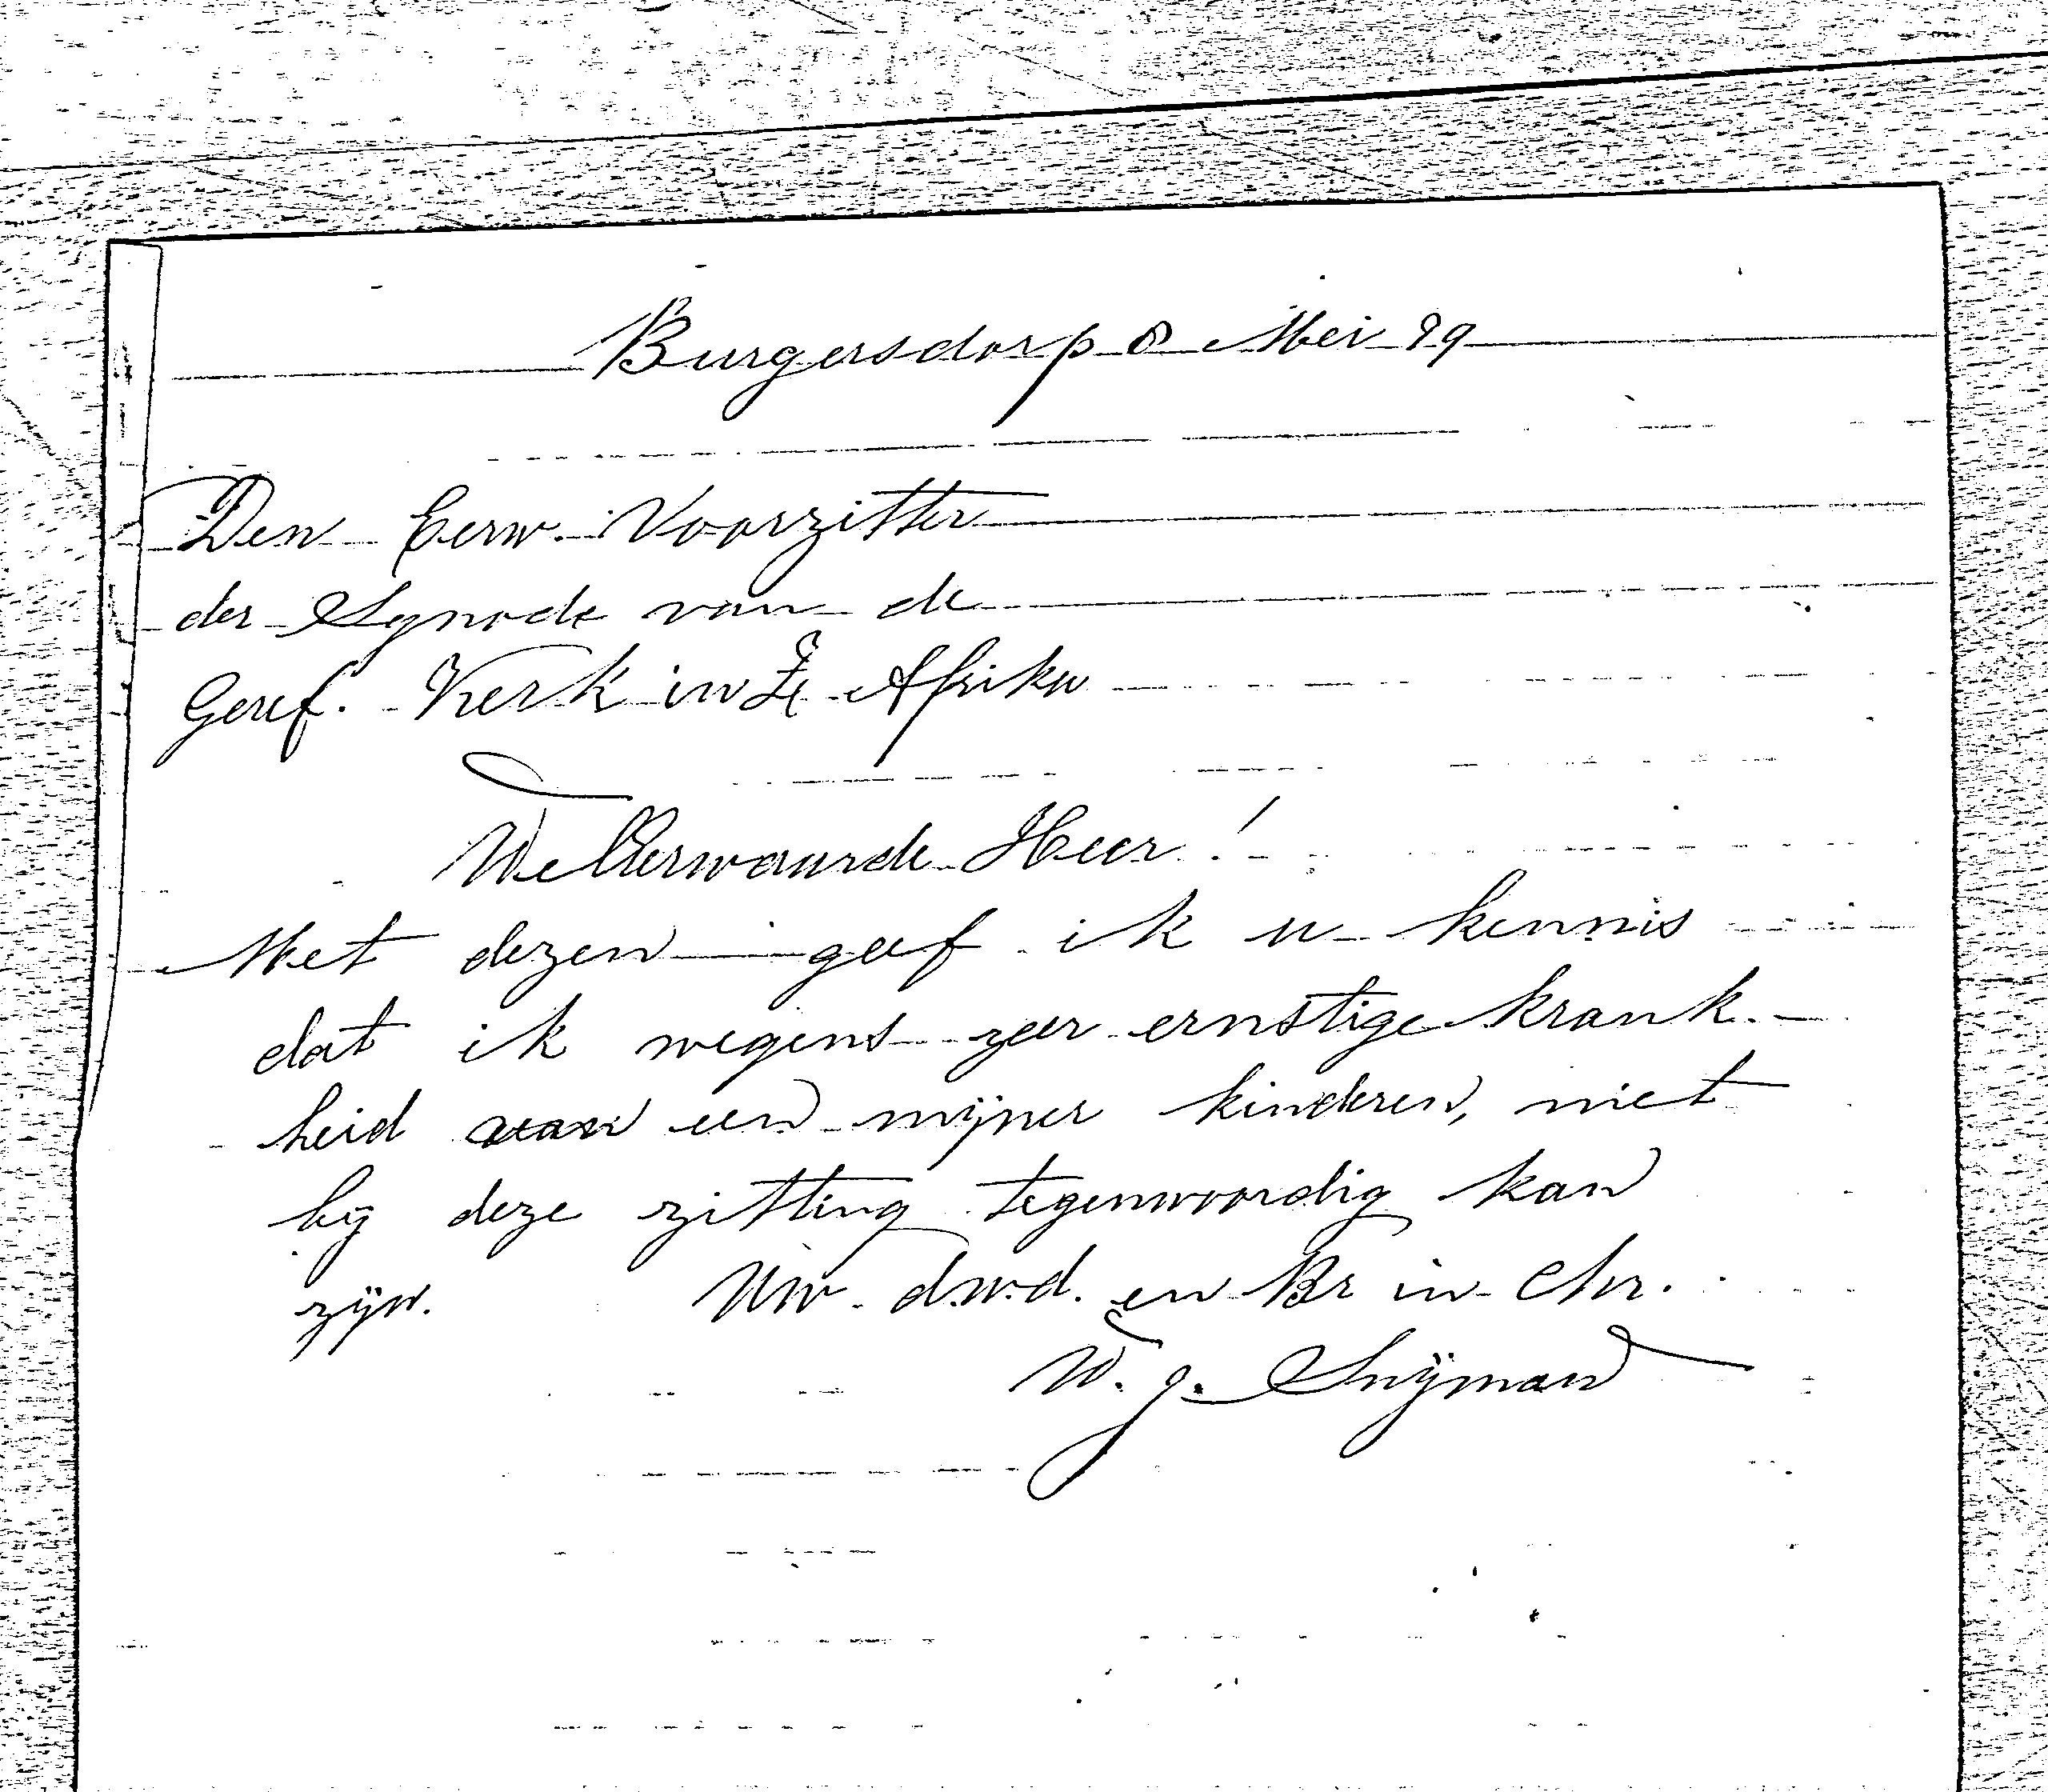 Burgersdorp 8 Mei 99
Den Eerw. Voorzitter
der Synode van de
Geref. Kerk in Z. Afrika
WelEerwaarde Heer!
Met dezen geef ik u kennis
dat ik wegens zeer ernstige krank-
heid van een mijner kinderen, niet
bij deze zitting tegenwoordig kan
zijn. Uw. d.w.d. en Br in Chr.
W. J. Snijman